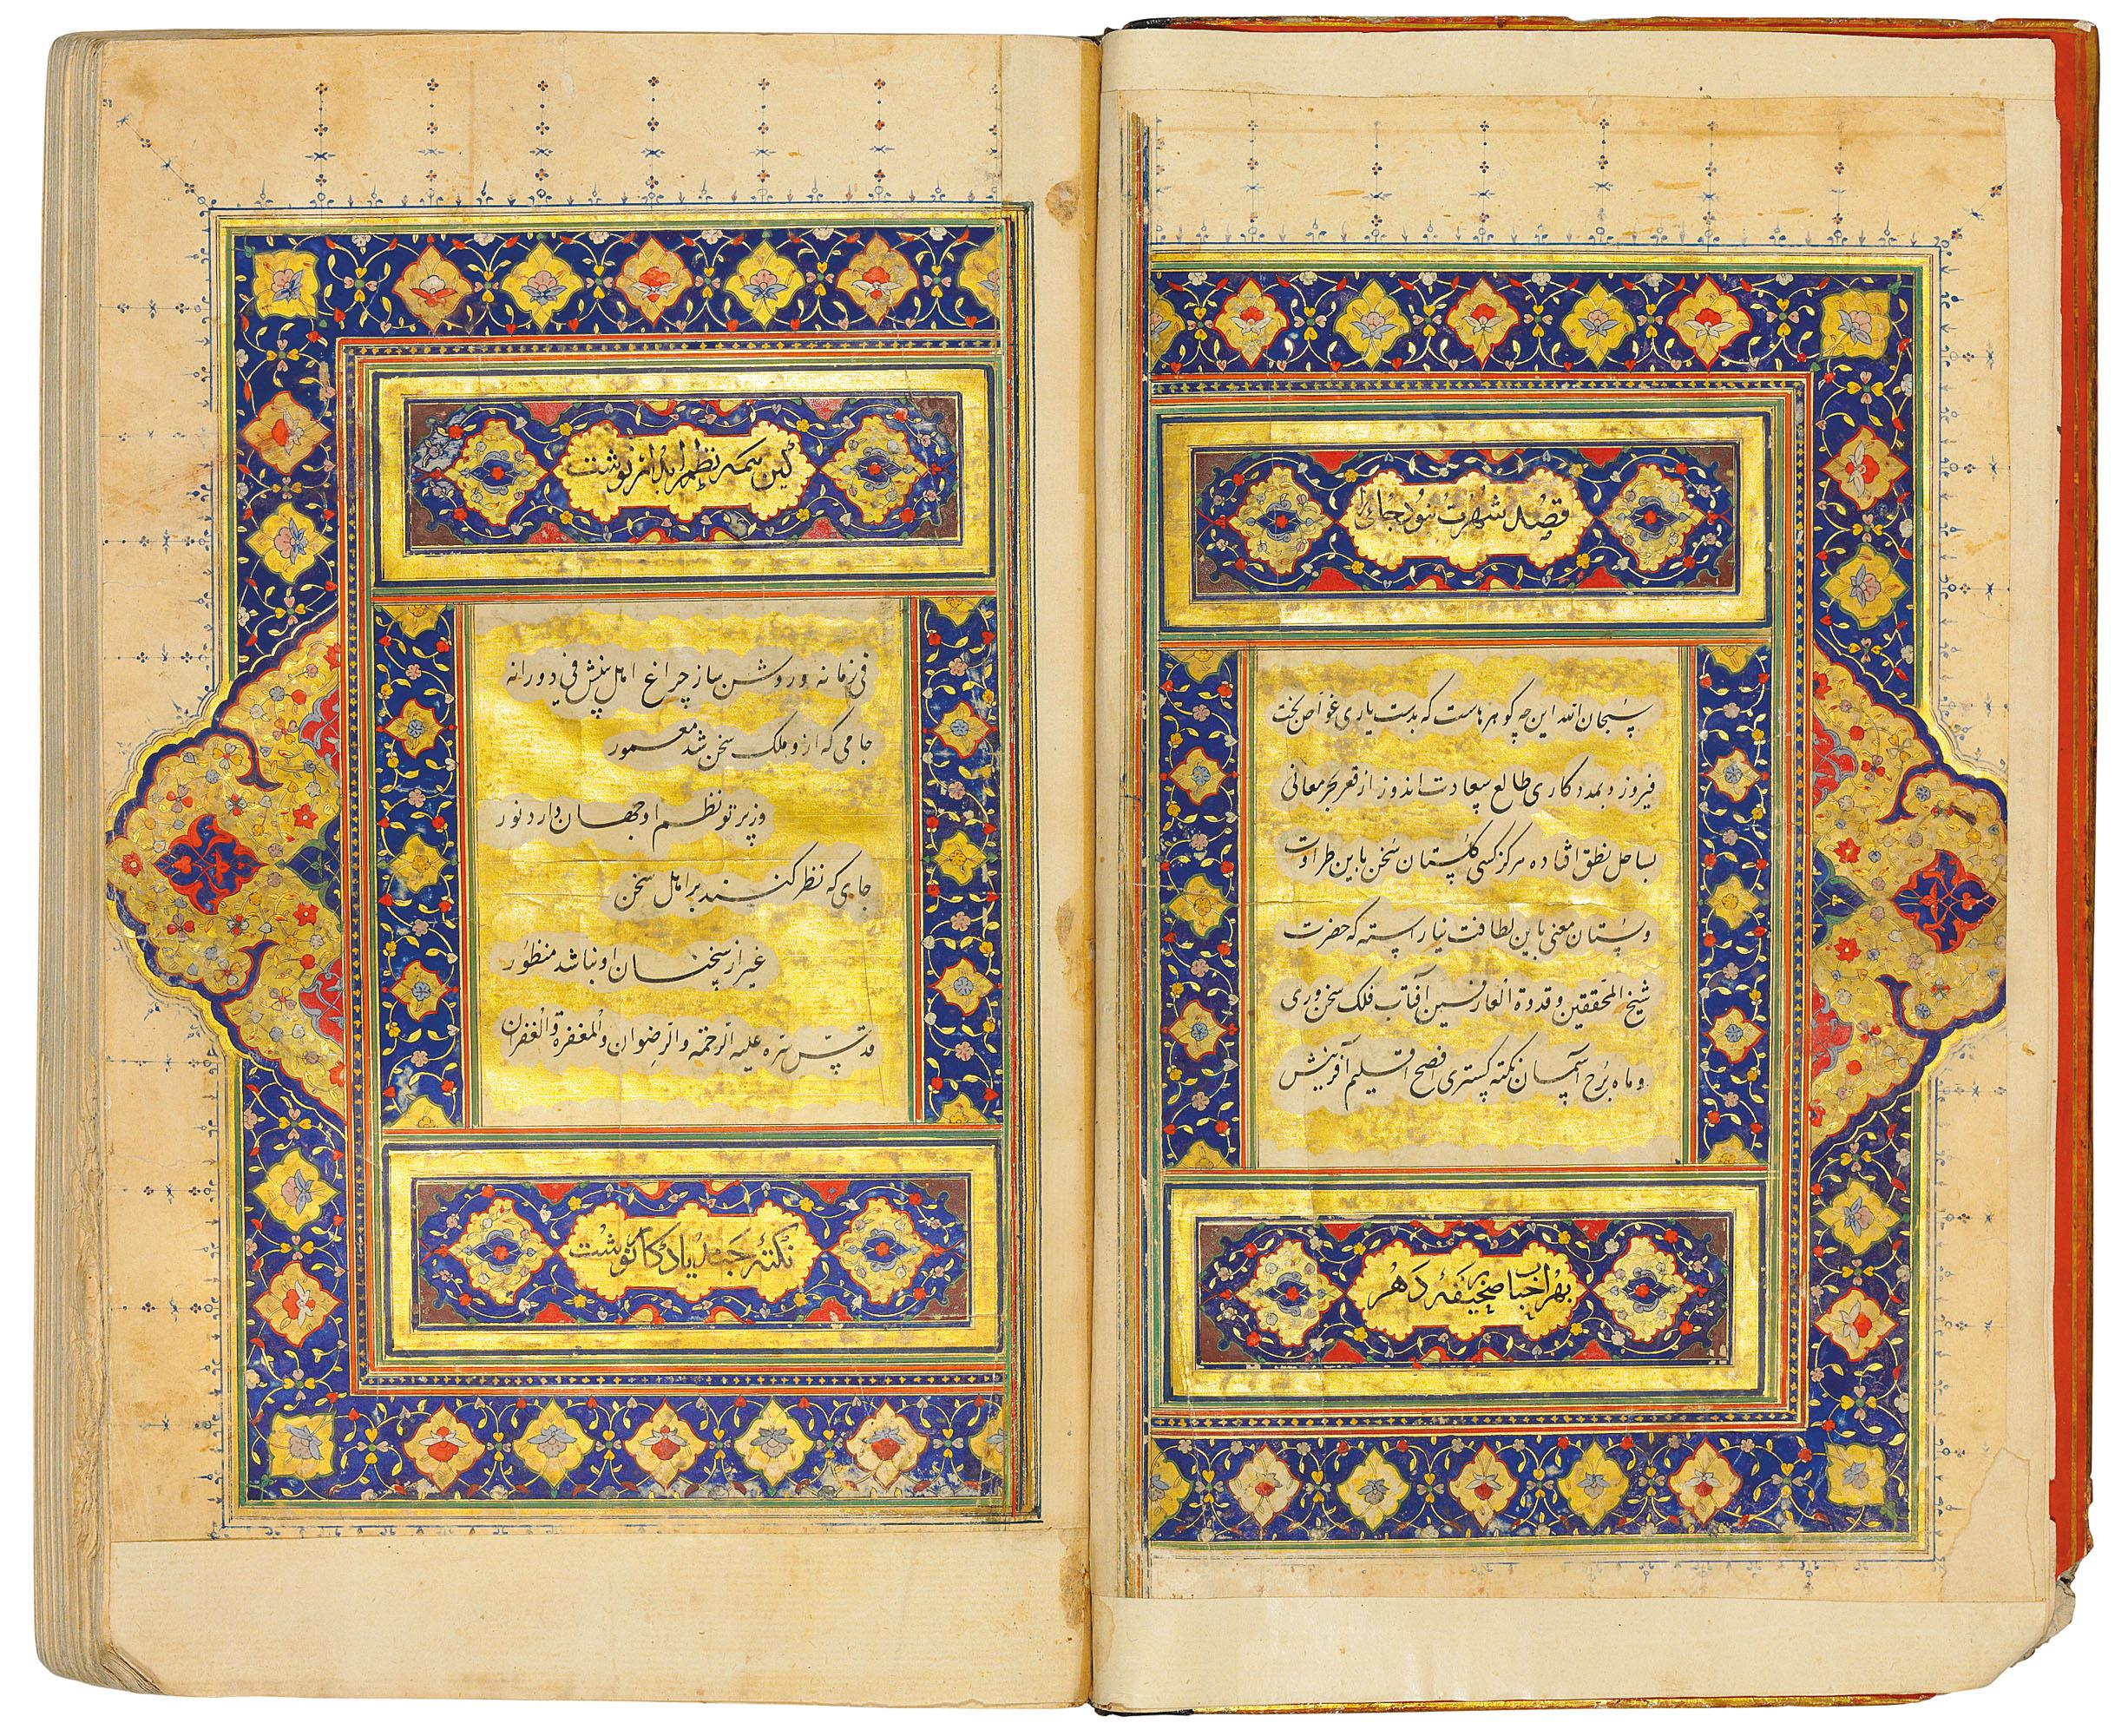 قصه شهرت نبود جائی را
سبحان الله این چه گوهرهاست که بدست یاری غواص بخت
فیروز و بمددکاری طالع سعادت اندوز از قعر بحر معانی
بساحل نطق افتاده هرگز کسی گلستان سخن باین طراوت
و بستان معنی باین لطافت نیاراسته که حضرت
شیخ المحققین و قدوة العارفین آفتاب فلک سخن وری
و ماه برج آسمان نکته گستری افصح اقلیم آفرینش
بهر احباب صحیفه دهر
کین همه نظم آبدار نوشت
فی زمانه و روشن ساز چراغ اهل بینش فی دورانه
جامی که ازو ملک سخن شد معمور
وز پرتو نظم او جهان دارد نور
جای که نظر کنند بر اهل سخن
غیر از سخنان او نباشد منظور
قدس سره علیه الرحمه و الرضوان و المغفرة و الغفران
نکتهٔ چند یادگار نوشت